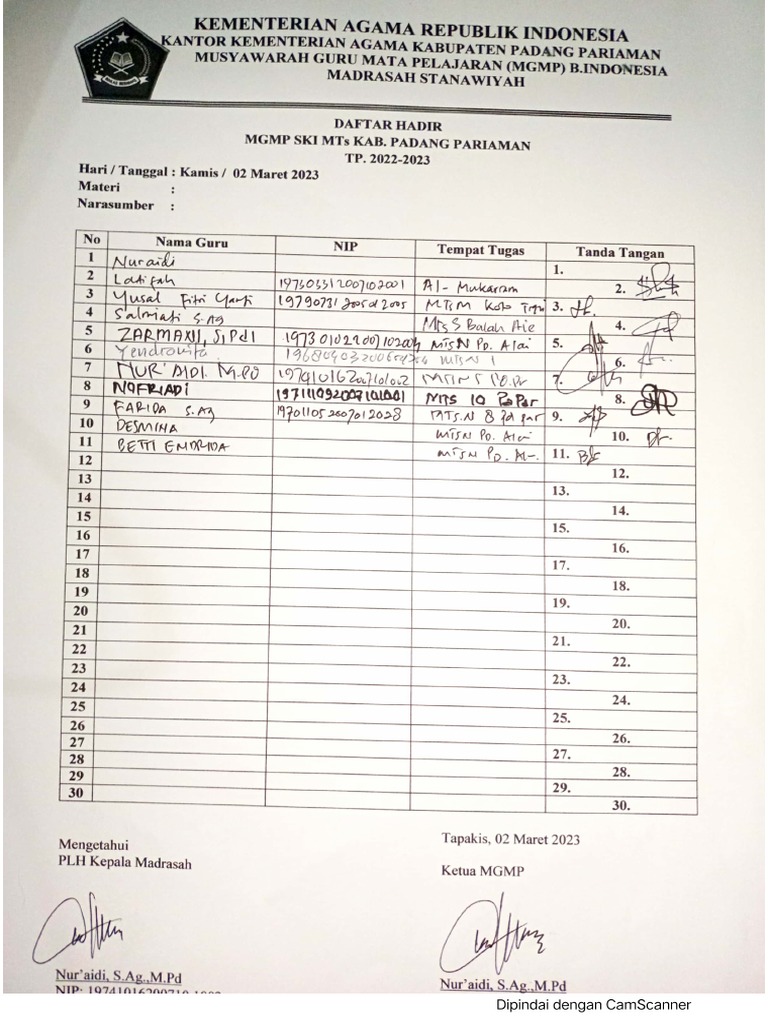 KEMENTERIAN AGAMA REPUBLIK INDONESIA
KANTOR KEMENTERIAN AGAMA KABUPATEN PADANG PARIAMAN
MUSYAWARAH GURU MATA PELAJARAN (MGMP) B.INDONESIA
MADRASAH STANAWIYAH
DAFTAR HADIR
MGMP SKI MTs KAB. PADANG PARIAMAN
TP. 2022-2023
Hari / Tanggal : Kamis / 02 Maret 2023
Materi :
Narasumber :
No Nama Guru NIP Tempat Tugas Tanda Tangan
1 Nuraidi 1.
2 Latifah 197303312007102001 Al-Mukarram 2.
3 Yusal Fitri Yanti MTsM Koto 3.
4 Salmiati S.Ag MTs S Balah Aie 4.
5 ZARMAXII, S,PdI MTSN Pd. Alai 5.
6 Yendrovita MTSN 1 6.
7 NUR'AIDI. M.PD 197410162007101002 7.
8 NOFRIADI 197111092007101001 MTS 10 Pd Par 8.
9 FARIDA S.Ag 197011052007012028 MTs.N 8 Pd par 9.
10 DESMINA MTSN Pd. Alai 10.
11 BETTI EMDRIDA MTSN Pd. Al-. 11.
12 12.
13 13.
14 14.
15 15.
16 16.
17 17.
18 18.
19 19.
20 20.
21 21.
22 22.
23 23.
24 24.
25 25.
26 26.
27 27.
28 28.
29 29.
30 30.
Mengetahui
PLH Kepala Madrasah
Tapakis, 02 Maret 2023
Ketua MGMP
Nur'aidi, S.Ag.,M.Pd
NIP:
Nur'aidi, S.Ag.,M.Pd
Dipindai dengan CamScanner